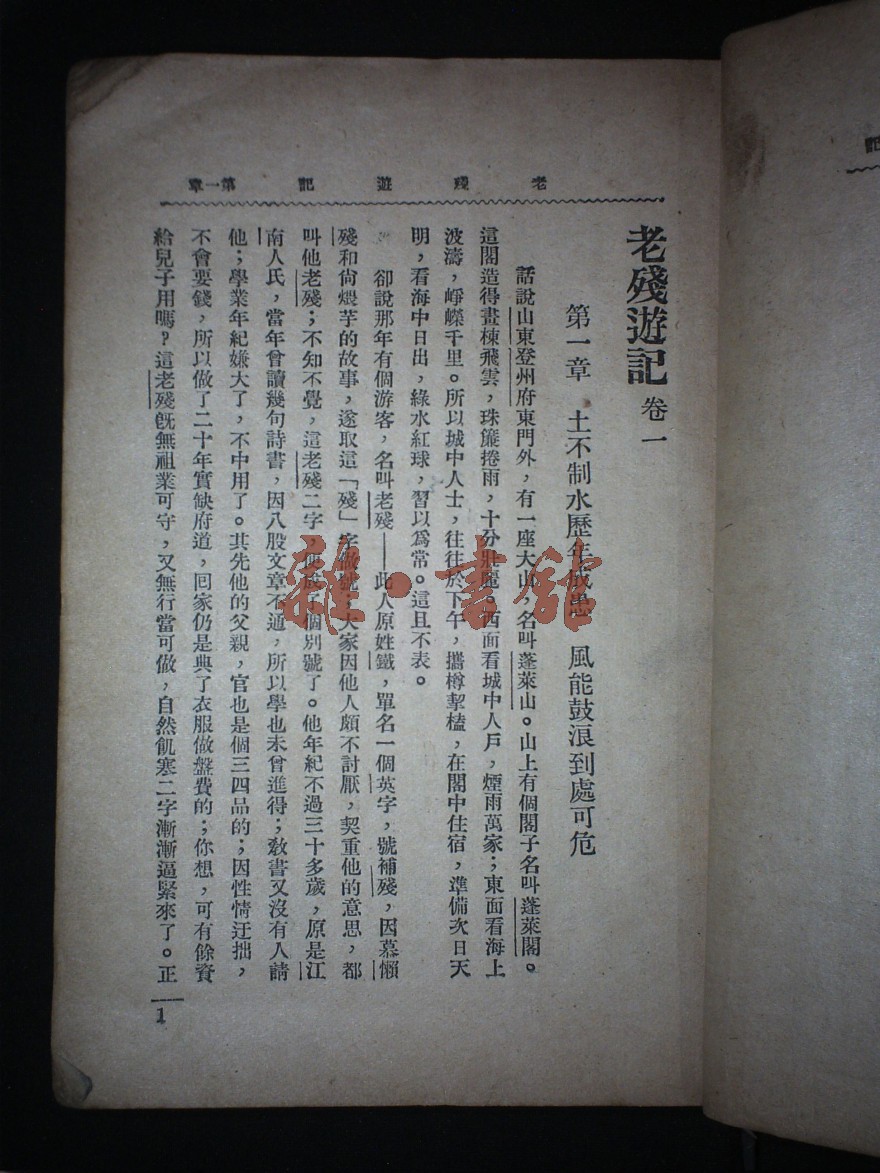 老殘遊記 第一章
老殘遊記 卷一
第一章 土不制水歷年成患 風能鼓浪到處可危
話說山東登州府東門外，有一座大山，名叫蓬萊山。山上有個閣子名叫蓬萊閣。
這閣造得畫棟飛雲，珠簾捲雨，十分壯麗。西面看城中人戶，煙雨萬家；東面看海上
波濤，崢嶸千里。所以城中人士，往往於下午，攜樽挈榼，在閣中住宿，準備次日天
明，看海中日出，綠水紅球，習以爲常。這且不表。
卻說那年有個游客，名叫老殘——此人原姓鐵，單名一個英字，號補殘，因慕懶
殘和尙煨芋的故事，遂取這「殘」字做號；大家因他人頗不討厭，契重他的意思，都
叫他老殘；不知不覺，這老殘二字，便成了個別號了。他年紀不過三十多歲，原是江
南人氏，當年曾讀幾句詩書，因八股文章不通，所以學也未曾進得；敎書又沒有人請
他；學業年紀嫌大了，不中用了。其先他的父親，官也是個三四品的；因性情迂拙，
不會要錢，所以做了二十年實缺府道，回家仍是典了衣服做盤費的；你想，可有餘資
給兒子用嗎？這老殘旣無祖業可守，又無行當可做，自然飢寒二字漸漸逼緊來了。正
1
記
雜·書館